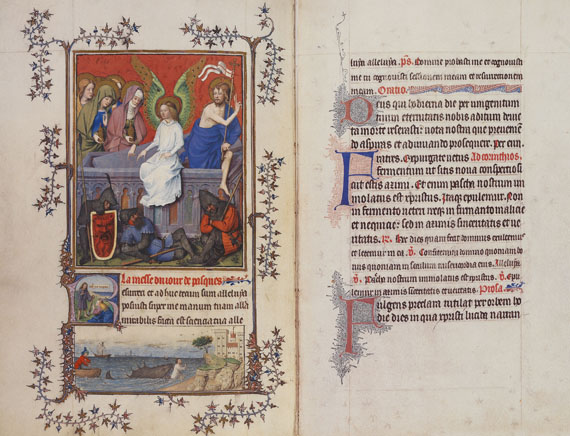 La messe du iour de pasques
esurrexi et ad huc tecum sum alleluya
posuisti super me manum tuam alla
mirabilis facta est sciencia alle
luya alleluya. ps. Domine probasti me et cognovisti
me tu cognovisti sessionem meam et resurrectionem
meam. Oratio.
Deus qui hodierna die per unigenitum
tuum eternitatis nobis aditum devic
ta morte reserasti: vota nostra que preveniendo
aspiras etiam adiuvando prosequere. Per eun
Fratres. Expurgate vetus Ad corinthios.
fermentum ut sitis nova conspersio
sicut estis azimi. Et enim pascha nostrum im
molatus est xpistus. Itaque epulemur. Non
in fermento veteri neque in fermento malicie
et nequicie: sed in azimis sinceritatis et ve
ritatis. Hec dies quam fecit dominus exultemur
et letemur in ea. V. Confitemini domino quoniam bo
nus quoniam in seculum misericordia eius. Alleluya.
V. Pascha nostrum immolatus est xpistus. V. Epu
lemur in azimis sinceritatis et veritatis. Prosa.
Fulgens preclara rutilat per orbem ho
die dies in qua xpristi lucida narran